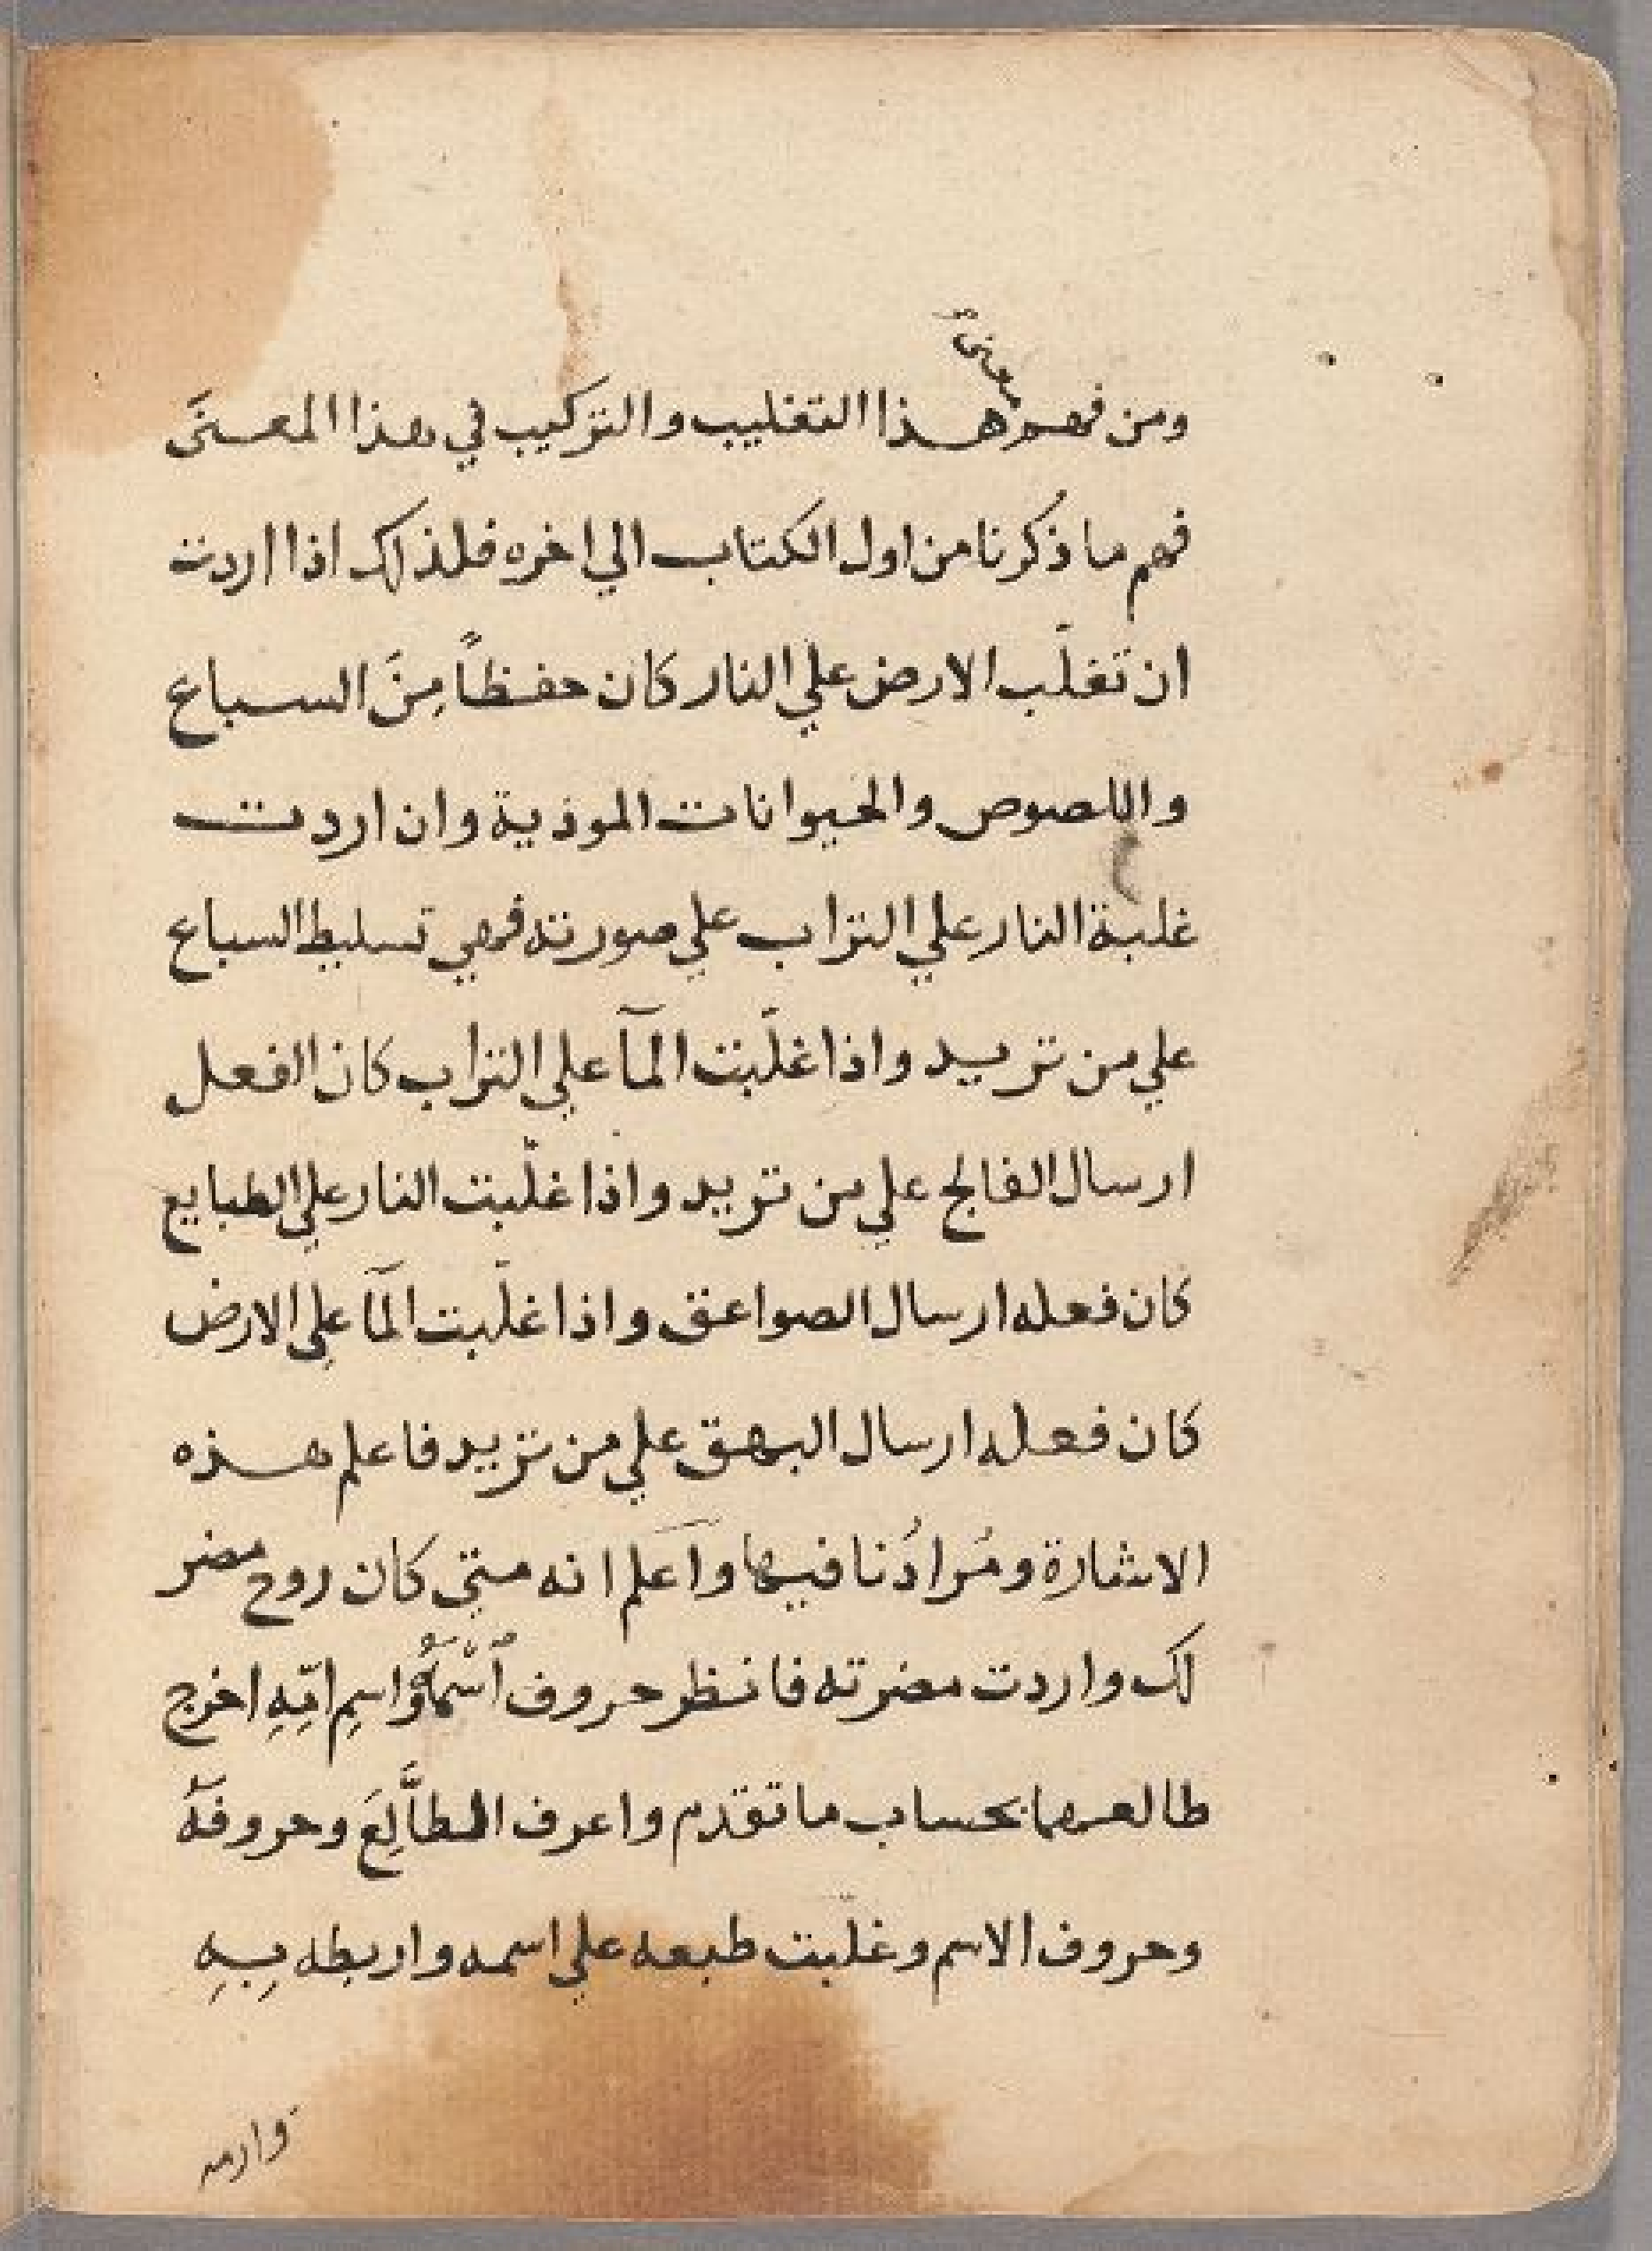 معنى صح
ومن فهم هذا التغليب والتركيب في هذا المعنَى
فهم ما ذُكرنا من اول الكتاب الي اخره فلذالك اذا اردت
ان تَغلّب الارض علي النار كان حفظاً مِنَ السباع
واللصوص والحيوانات الموذية وان اردت
غلبة النار علي التراب علي صورته فهي تسليط السباع
علي من تريد واذا غلّبت المآ علي التراب كان الفعل
ارسال الفالج علي من تريد واذا غلّبت النار علي الطبايع
كان فعله ارسال الصواعق واذا غلّبت المآ علي الارض
كان فعله ارسال البهق علي من تريد فاعلم هذه
الاشارة ومُرادُنا فيها واَعلم انه متي كان روح مضر
لك واردت مضرته فانظر حروف اسْمهُ واسمِ امّهِ اخرج
طالعهما بحساب ما تقدم واعرف الطالِعَ وحروفهَ
وحروف الاسم وغلّبت طبعه علي اسمه واربطه بِهِ